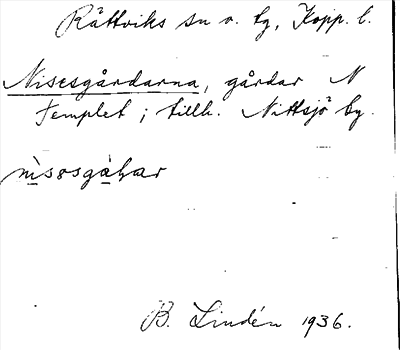 Rättviks sn o. tg, Kopp. l.
Nisesgårdarna, gårdar N
Templet ; tillh. Nittsjö by.
B. Lindén 1936.